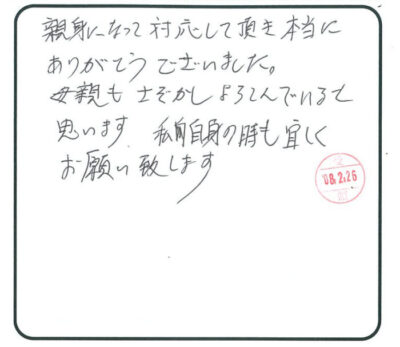 親身になって対応して頂き本当に
ありがとうございました。
母親もさぞかしよろこんでいると
思います 私自身の時も宜しく
お願い致します
08.2.26